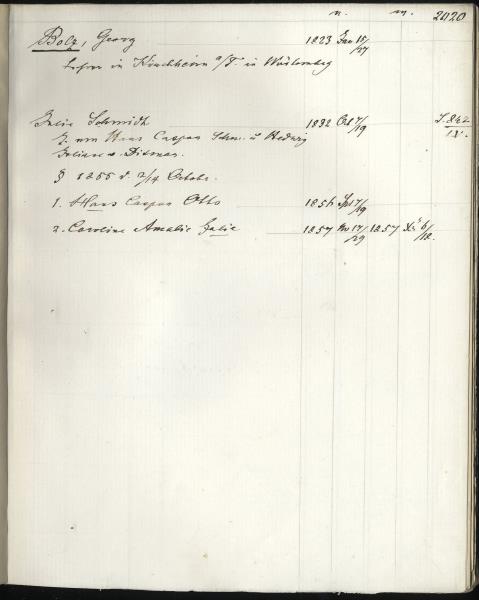 n. m. 2420
Bolz, Georg 1823 Jan 15/27
in Kirchheim a/T. in Würtemberg
Julie Schmidt 1832 Oct 7/19 S. 842
T. von Hans Caspar Schm. u Hedwig IV.
Juliane Dittmar.
§ 1855 d. 2/14 Octobr.
1. Hans Caspar Otto 1856 Sp 17/29
2. Caroline Amalie Julie 1857 Nv 17/29 1857 6/18